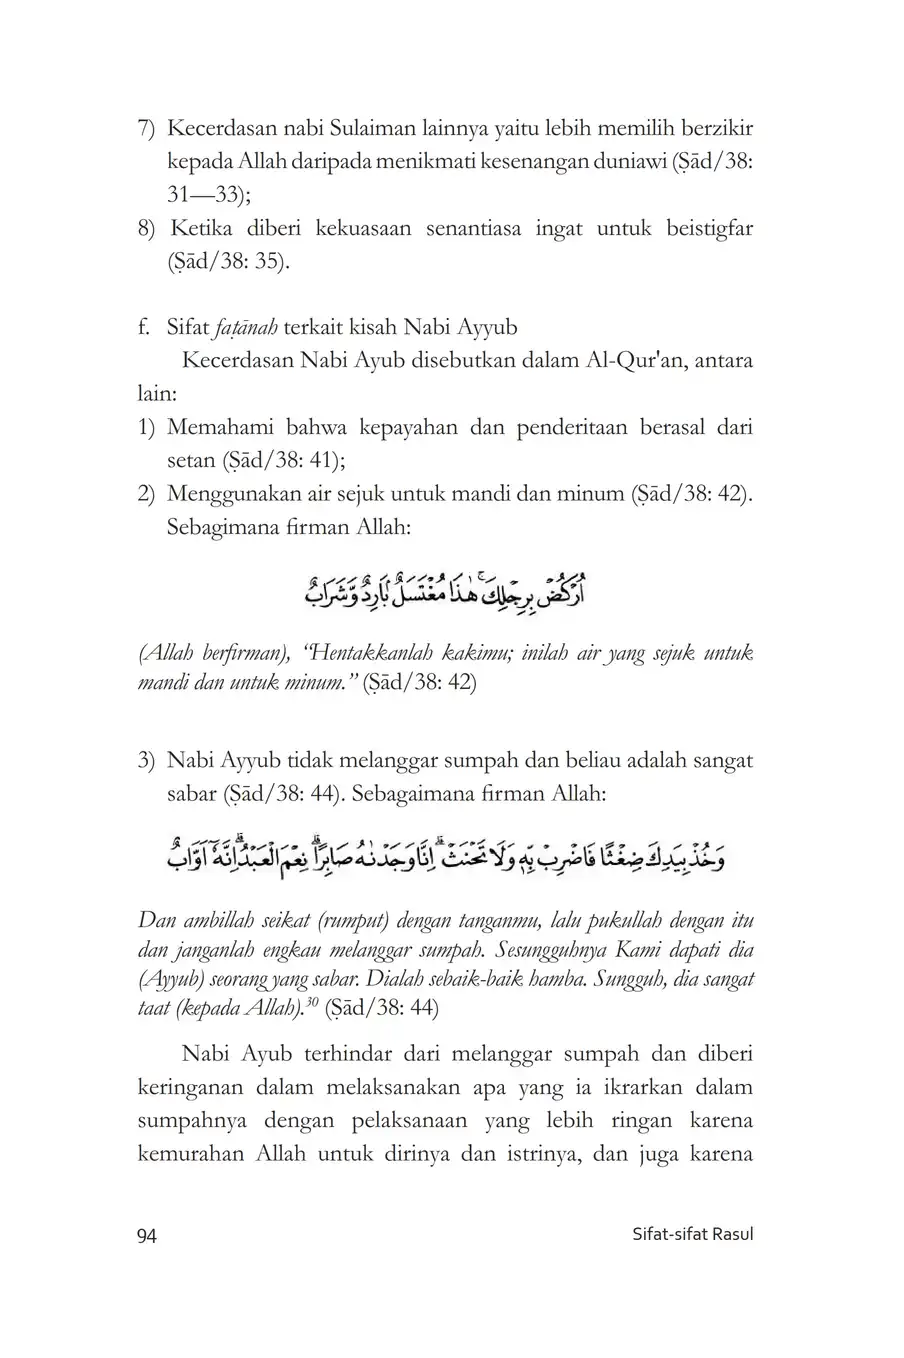 7) Kecerdasan nabi Sulaiman lainnya yaitu lebih memilih berzikir
kepada Allah daripada menikmati kesenangan duniawi (Ṣād/38:
31—33);
8) Ketika diberi kekuasaan senantiasa ingat untuk beistigfar
(Ṣād/38: 35).
f. Sifat faṭānah terkait kisah Nabi Ayyub
Kecerdasan Nabi Ayub disebutkan dalam Al-Qur'an, antara
lain:
1) Memahami bahwa kepayahan dan penderitaan berasal dari
setan (Ṣād/38: 41);
2) Menggunakan air sejuk untuk mandi dan minum (Ṣād/38: 42).
Sebagimana firman Allah:
اُرْكُضْ بِرِجْلِكَۚ هٰذَا مُغْتَسَلٌۢ بَارِدٌ وَّشَرَابٌ
(Allah berfirman), “Hentakkanlah kakimu; inilah air yang sejuk untuk
mandi dan untuk minum.” (Ṣād/38: 42)
3) Nabi Ayyub tidak melanggar sumpah dan beliau adalah sangat
sabar (Ṣād/38: 44). Sebagaimana firman Allah:
وَخُذْ بِيَدِكَ ضِغْثًا فَاضْرِبْ بِّهٖ وَلَا تَحْنَثْۗ اِنَّا وَجَدْنٰهُ صَابِرًاۗ نِعْمَ الْعَبْدُۗ اِنَّهٗٓ اَوَّابٌ
Dan ambillah seikat (rumput) dengan tanganmu, lalu pukullah dengan itu
dan janganlah engkau melanggar sumpah. Sesungguhnya Kami dapati dia
(Ayyub) seorang yang sabar. Dialah sebaik-baik hamba. Sungguh, dia sangat
taat (kepada Allah).³⁰ (Ṣād/38: 44)
Nabi Ayub terhindar dari melanggar sumpah dan diberi
keringanan dalam melaksanakan apa yang ia ikrarkan dalam
sumpahnya dengan pelaksanaan yang lebih ringan karena
kemurahan Allah untuk dirinya dan istrinya, dan juga karena
94
Sifat-sifat Rasul